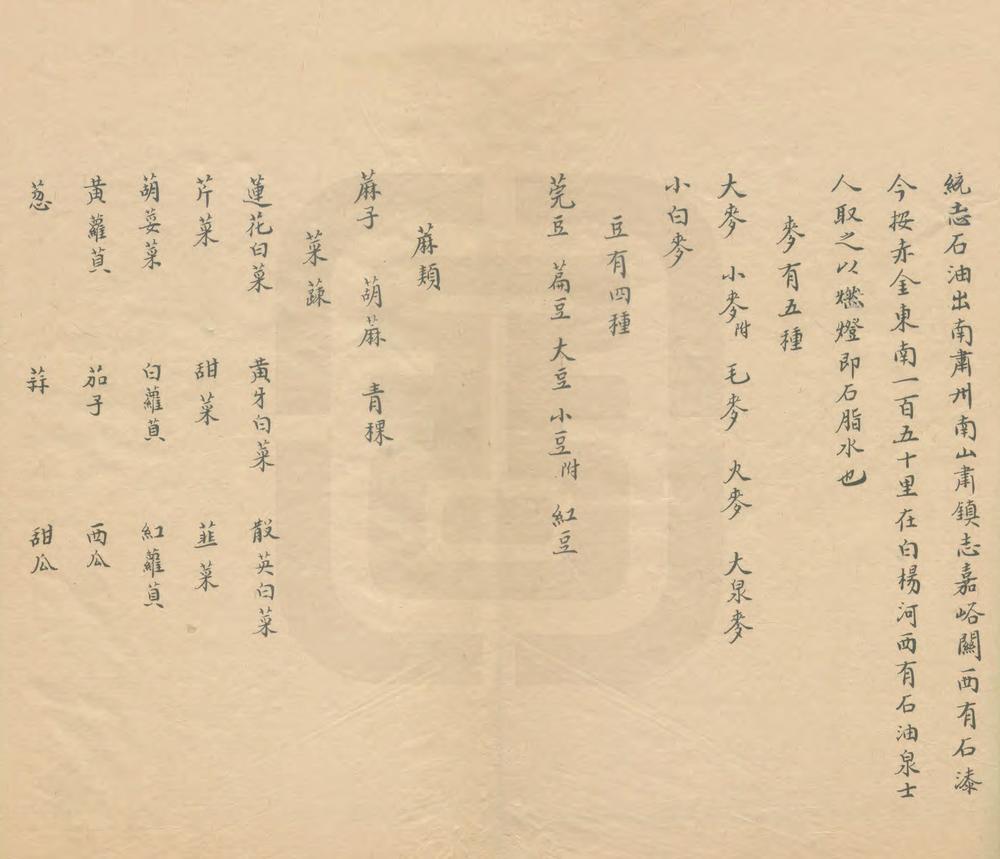 統志石油出南肅州南山肅鎮志嘉峪關西有石漆
今按赤金東南一百五十里在白楊河西有石油泉士
人取之以燃燈即石脂水也
麥有五種
大麥 小麥附 毛麥 火麥 大泉麥
小白麥
豆有四種
莞豆 萹豆 大豆 小豆附 紅豆
蔴類
蔴子 葫蔴 青稞
菜蔬
蓮花白菜 黃牙白菜 散英白菜
芹菜 甜菜 韮菜
葫荽菜 白蘿蔔 紅蘿蔔
黃蘿蔔 茄子 西瓜
葱 蒜 甜瓜